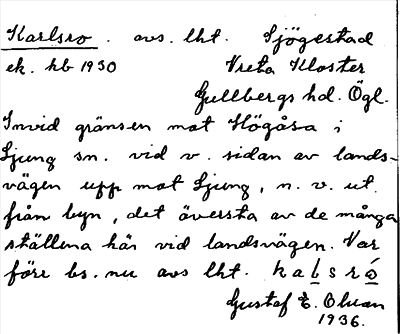 Karlsro. avs. lht. Sjögestad
ek. hb 1930 Vreta Kloster
Gullbergs hd. Ögl.
Invid gränsen mot Högåsa i
Ljung sn. vid v. sidan av lands-
vägen upp mot Ljung, n. v. ut
från byn, det översta av de många
ställena här vid landsvägen. Var
före bs. nu avs lht. kalsró
Gustaf E. Olsan
1936.